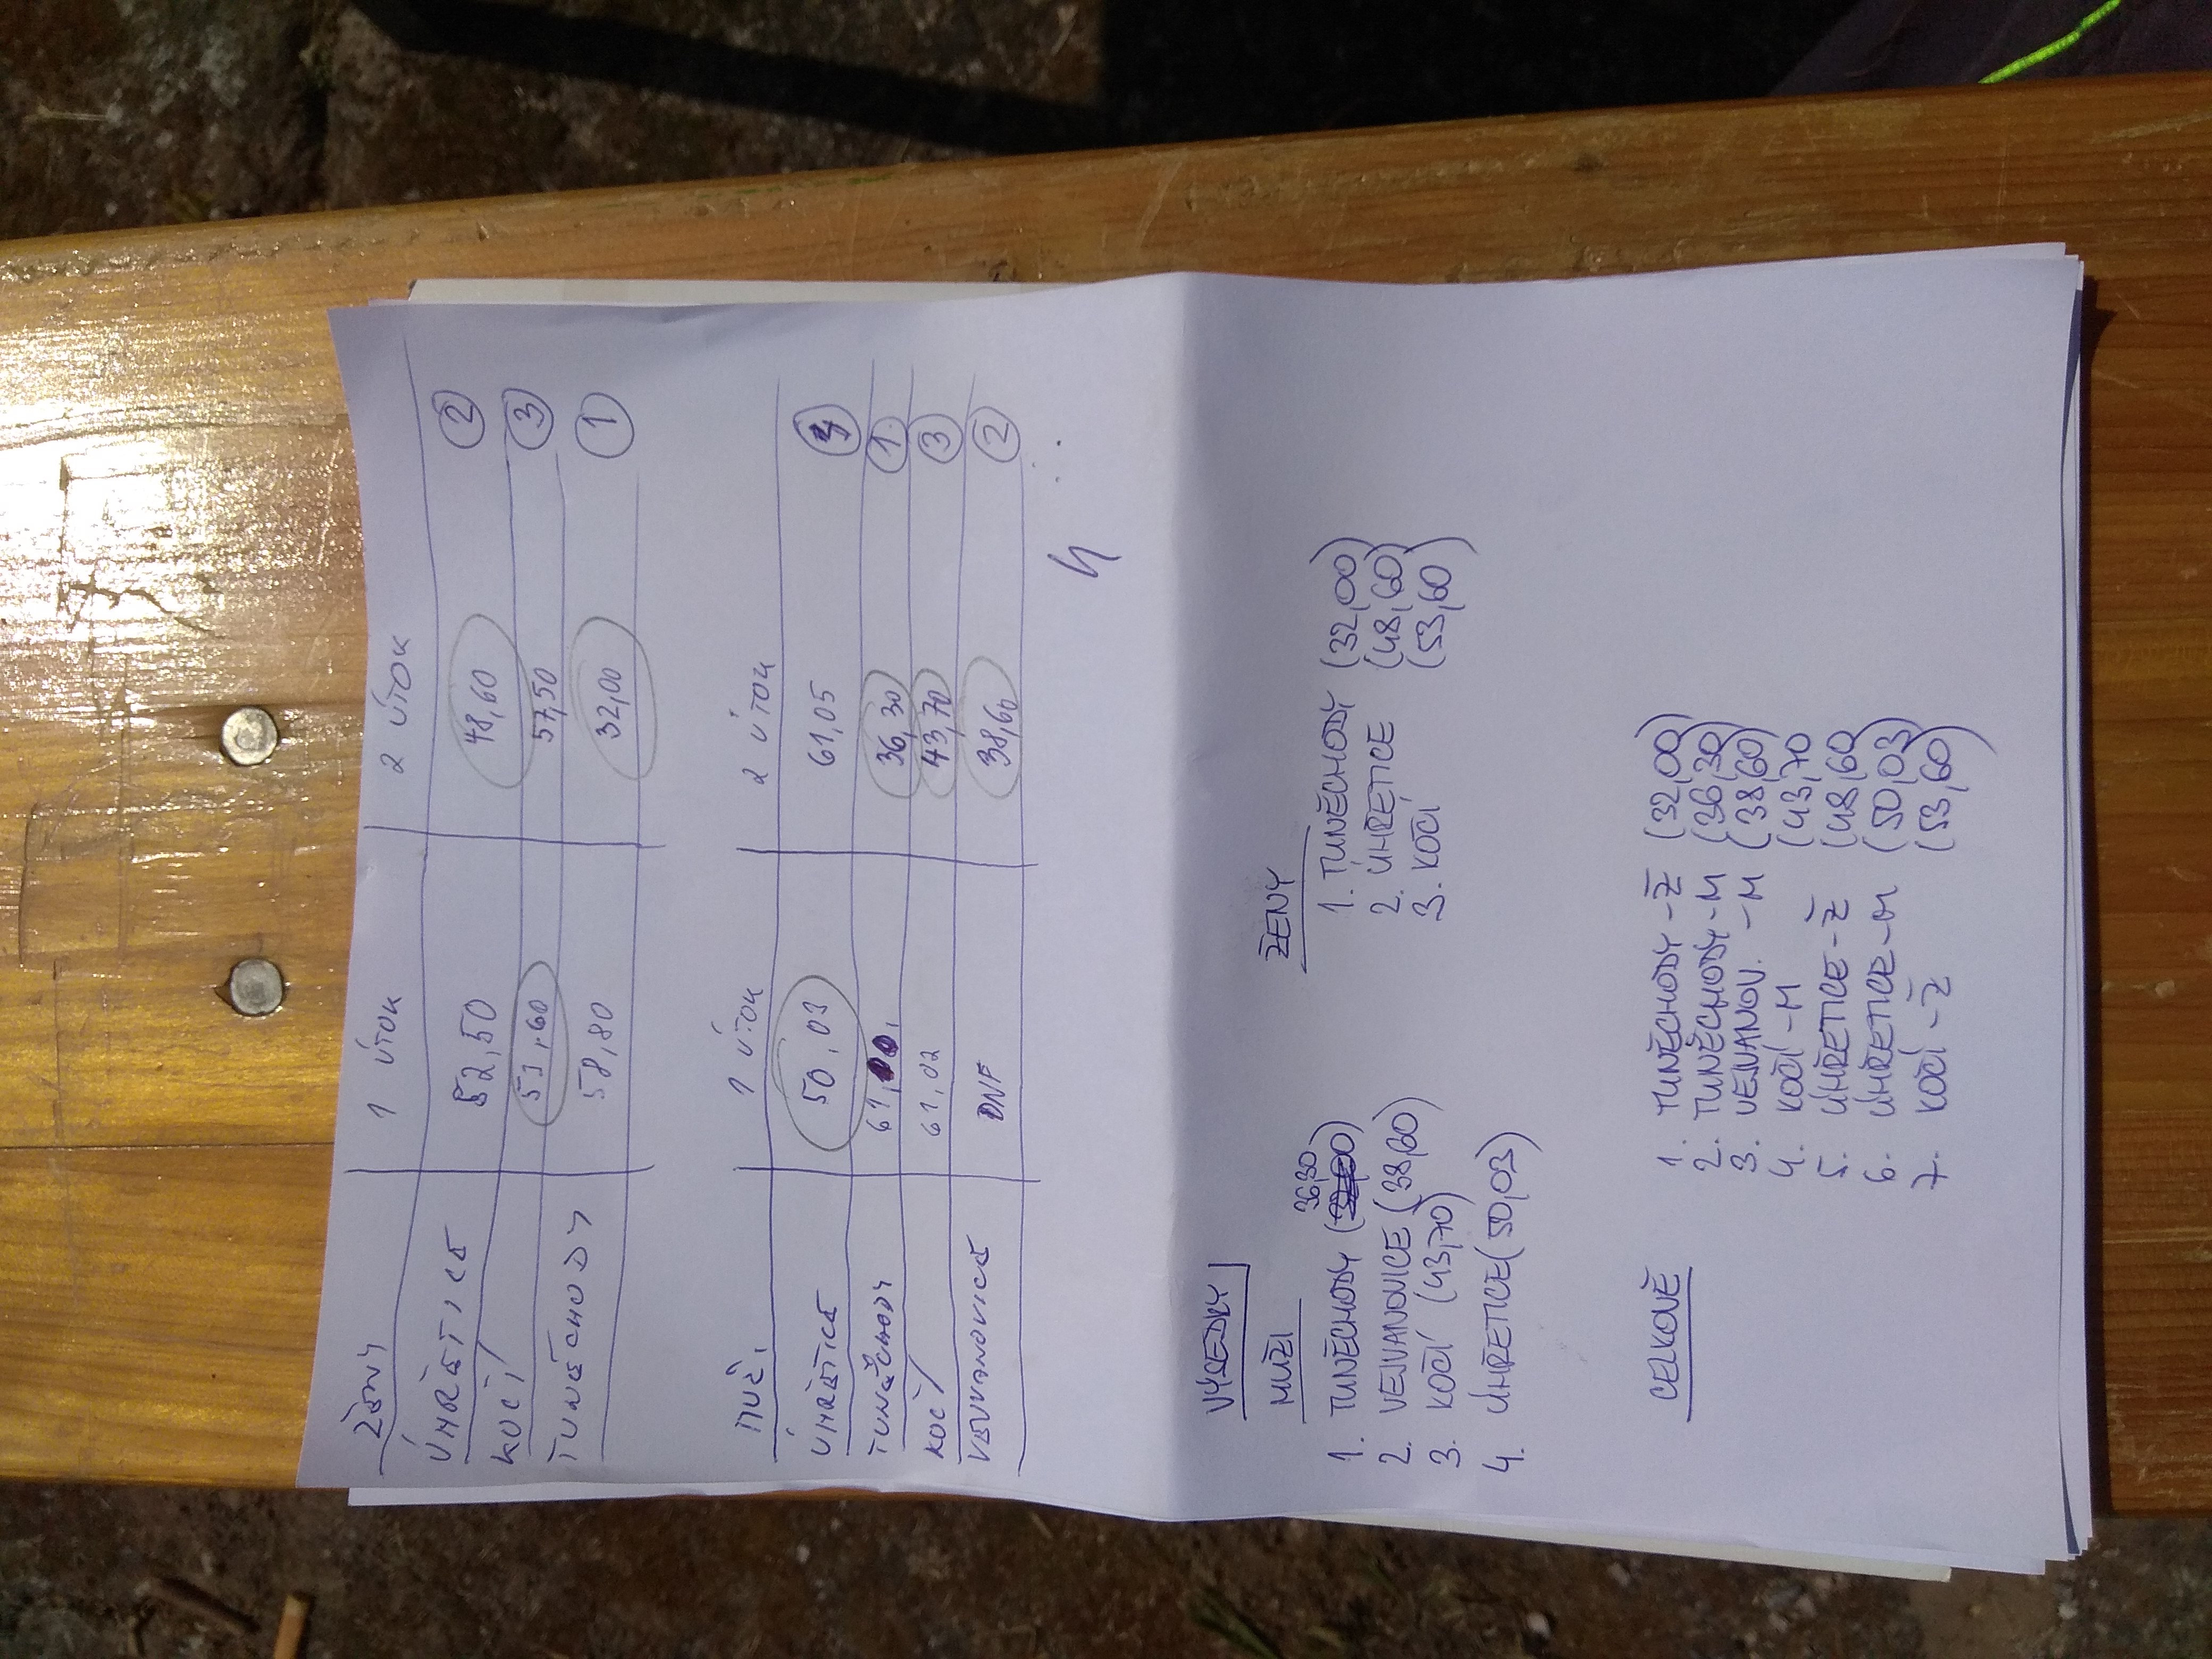 ŽENY 1 ÚTOK 2 ÚTOK
ÚHŘETICE 52,50 48,60 2
KOČÍ 53,60 57,50 3
TUNĚCHODY 58,80 32,00 1
MUŽI 1 ÚTOK 2 ÚTOK
ÚHŘETICE 50,03 61,05
TUNĚCHODY 61, 36,30 1
KOČÍ 61,02 43,70 3
VEJVANOVICE DNF 38,60 2
VÝSLEDKY
MUŽI
1. TUNĚCHODY (36,30)
2. VEJVANOVICE (38,60)
3. KOČÍ (43,70)
4. ÚHŘETICE (50,03)
ŽENY
1. TUNĚCHODY (32,00)
2. ÚHŘETICE (48,60)
3. KOČÍ (53,60)
CELKOVĚ
1. TUNĚCHODY - Ž (32,00)
2. TUNĚCHODY - M (36,30)
3. VEJVANOV. - M (38,60)
4. KOČÍ - M (43,70
5. ÚHŘETICE - Ž (48,60)
6. ÚHŘETICE - M (50,03)
7. KOČÍ - Ž (53,60)